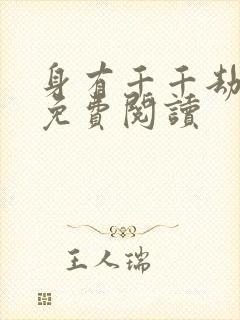 身有千千劫
免費閱讀
王人瑞